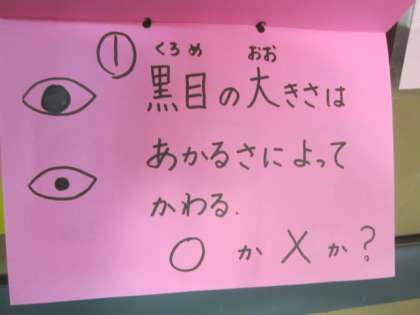 ① 黒目の大きさは
くろめ おお
あかるさによって
かわる.
○ か × か?